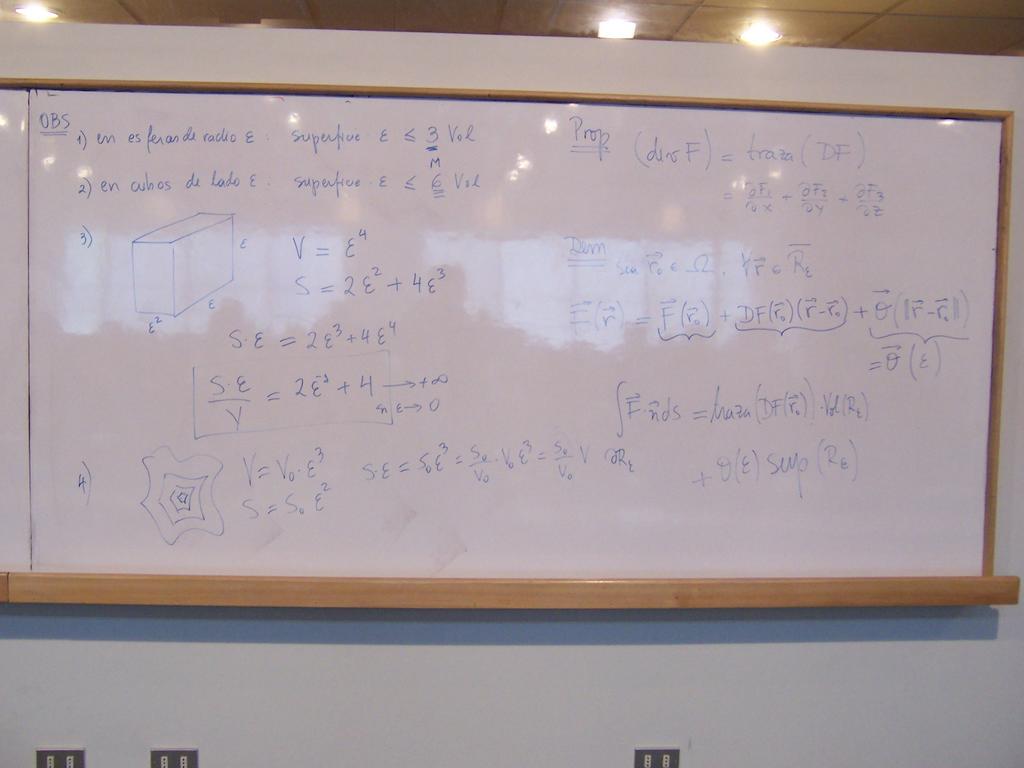 OBS
1) en esferas de radio ε : superficie · ε ≤ 3 Vol
M
2) en cubos de lado ε : superficie · ε ≤ 6 Vol
3)
ε
ε
ε²
V = ε⁴
S = 2ε² + 4ε³
S·ε = 2ε³ + 4ε⁴
S·ε/V = 2ε⁻¹ + 4 → +∞
ε → 0
4)
V = V₀·ε³
S = S₀ ε²
S·ε = S₀ε³ = S₀/V₀ · V₀ε³ = S₀/V₀ V
Prop
(div F) = traza (DF)
= ∂F₁/∂x + ∂F₂/∂y + ∂F₃/∂z
Dem
Sea r⃗₀ ∈ Ω, ∀r⃗ ∈ R̅ε
F⃗(r⃗) = F⃗(r⃗₀) + DF(r⃗₀)(r⃗-r⃗₀) + σ⃗(‖r⃗-r⃗₀‖)
= σ⃗(ε)
∫ F⃗·n⃗ ds = traza(DF(r⃗₀))·Vol(Rε)
∂Rε
+ σ(ε) Sup(Rε)